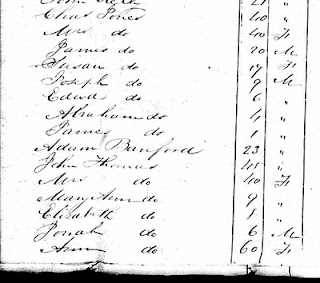 21 "
Chas Jones 40 "
Mrs do 40 F
James do 20 M
Susan do 17 F
Joseph do 9 M
Edwd do 6 "
Abraham do 4 "
James do 1 "
Adam Banford 23 "
John Thomas 45 "
Mrs do 40 F
Mary Ann do 9 "
Elizabeth do 8 "
Jonah do 6 M
Ann do 60 F